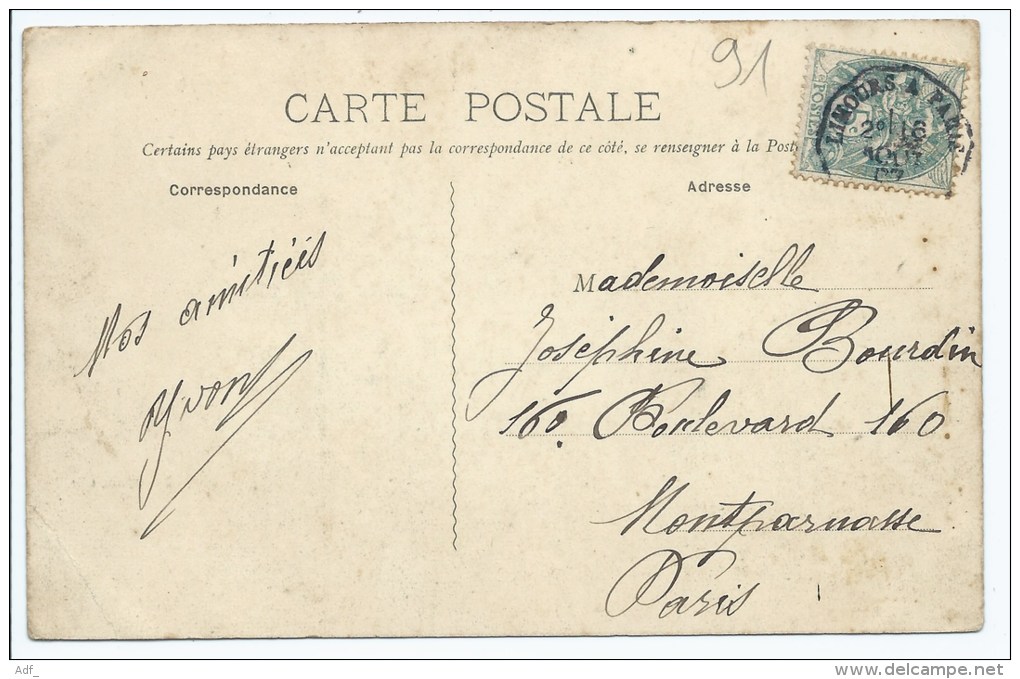 91
CARTE POSTALE
Certains pays étrangers n'acceptant pas la correspondance de ce côté, se renseigner à la Poste
Correspondance
Adresse
POSTES
LIMOURS A PARIS
2º 16
AOUT
07
Nos amitiés
Yvon
Mademoiselle
Joséphine Bourdin
160. Boulevard 160
Montparnasse
Paris
Adf_
www.delcampe.net